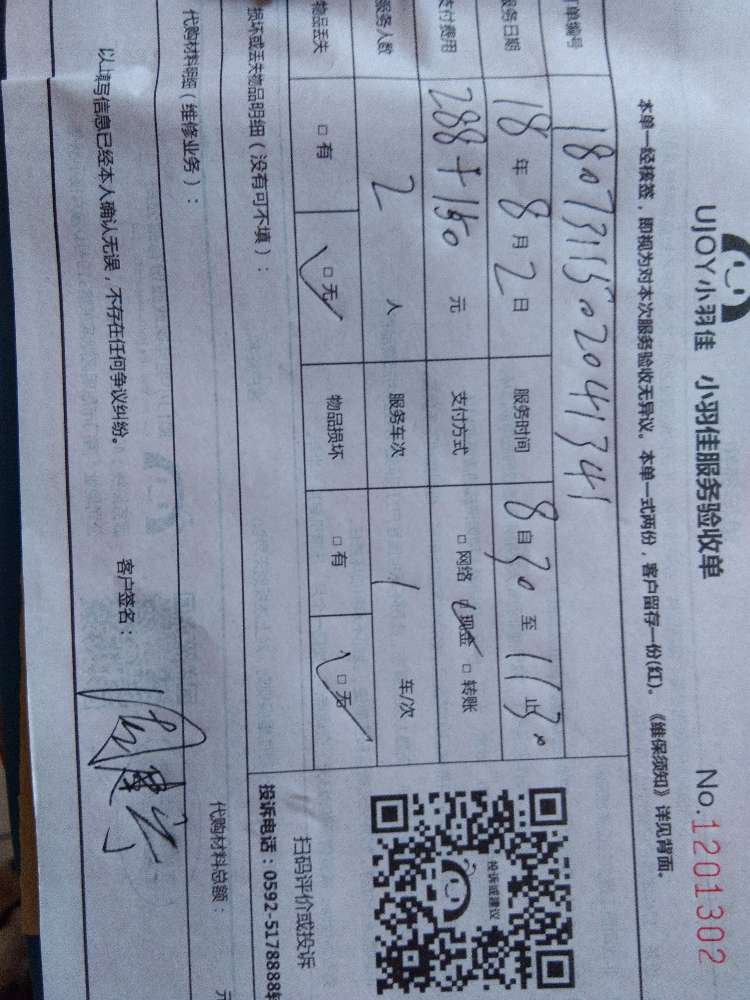 UJOY小羽佳 小羽佳服务验收单 No.1201302
本单一经核签，即视为对本次服务验收无异议。本单一式两份，客户留存一份(红)。《维保须知》详见背面。
单编号 180731150204 1341
服务日期 18 年 8 月 2 日 服务时间 8 自 30 至 11 止 30
支付费用 288+150 元 支付方式 □ 网络 □ 现金 □ 转账
服务人数 2 人 服务车次 1 车/次
物品丢失 □ 有 □ 无 物品损坏 □ 有 □ 无
投诉或建议
扫码评价或投诉
投诉电话：0592-5178888转
损坏或丢失物品明细（没有可不填）：
代购材料明细（维修业务）： 代购材料总额： 元
以上填写信息已经本人确认无误，不存在任何争议纠纷。 客户签名：